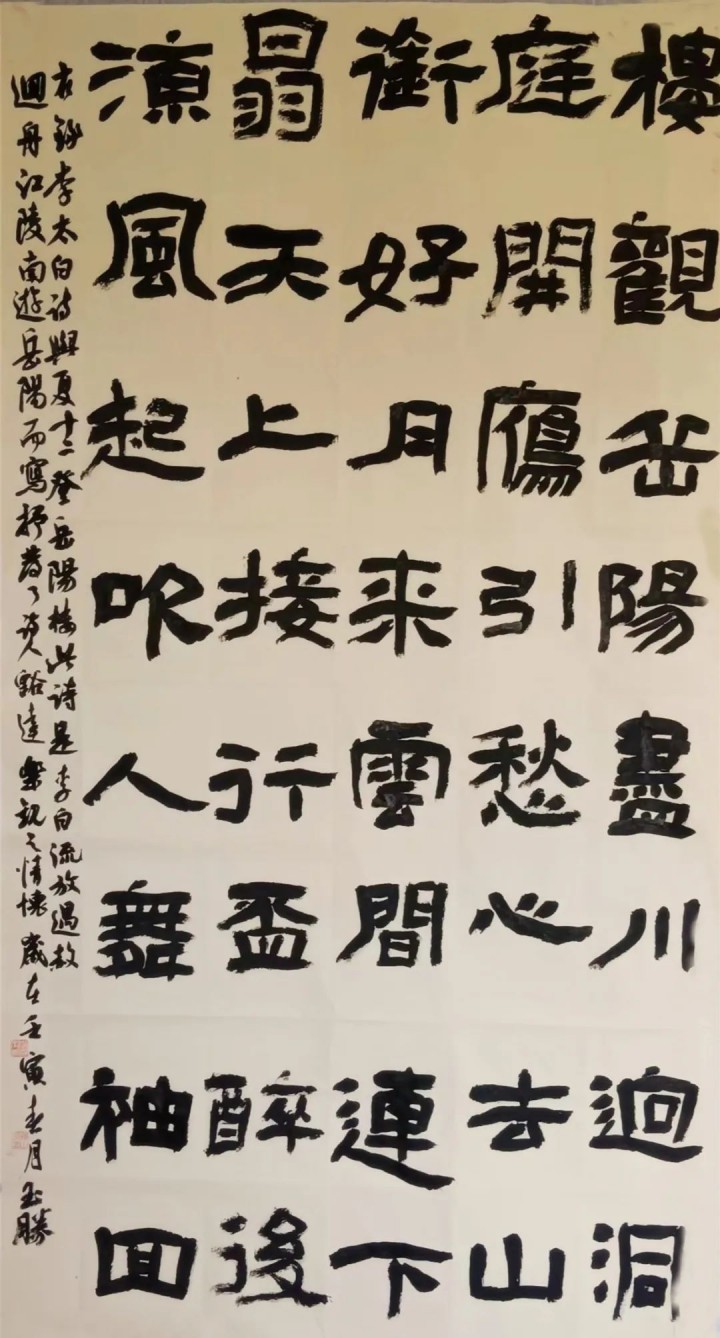 樓觀岳陽盡川迥洞
庭開鴈引愁心去山
銜好月来雲間連下
榻天上接行盃醉後
涼風起吹人舞袖回
右錄李太白诗與夏十二登岳陽楼此詩是李白流放遇赦
迴舟江陵南遊岳陽而寫抒發了诗人豁達樂观之情懷歲在壬寅春月玉勝